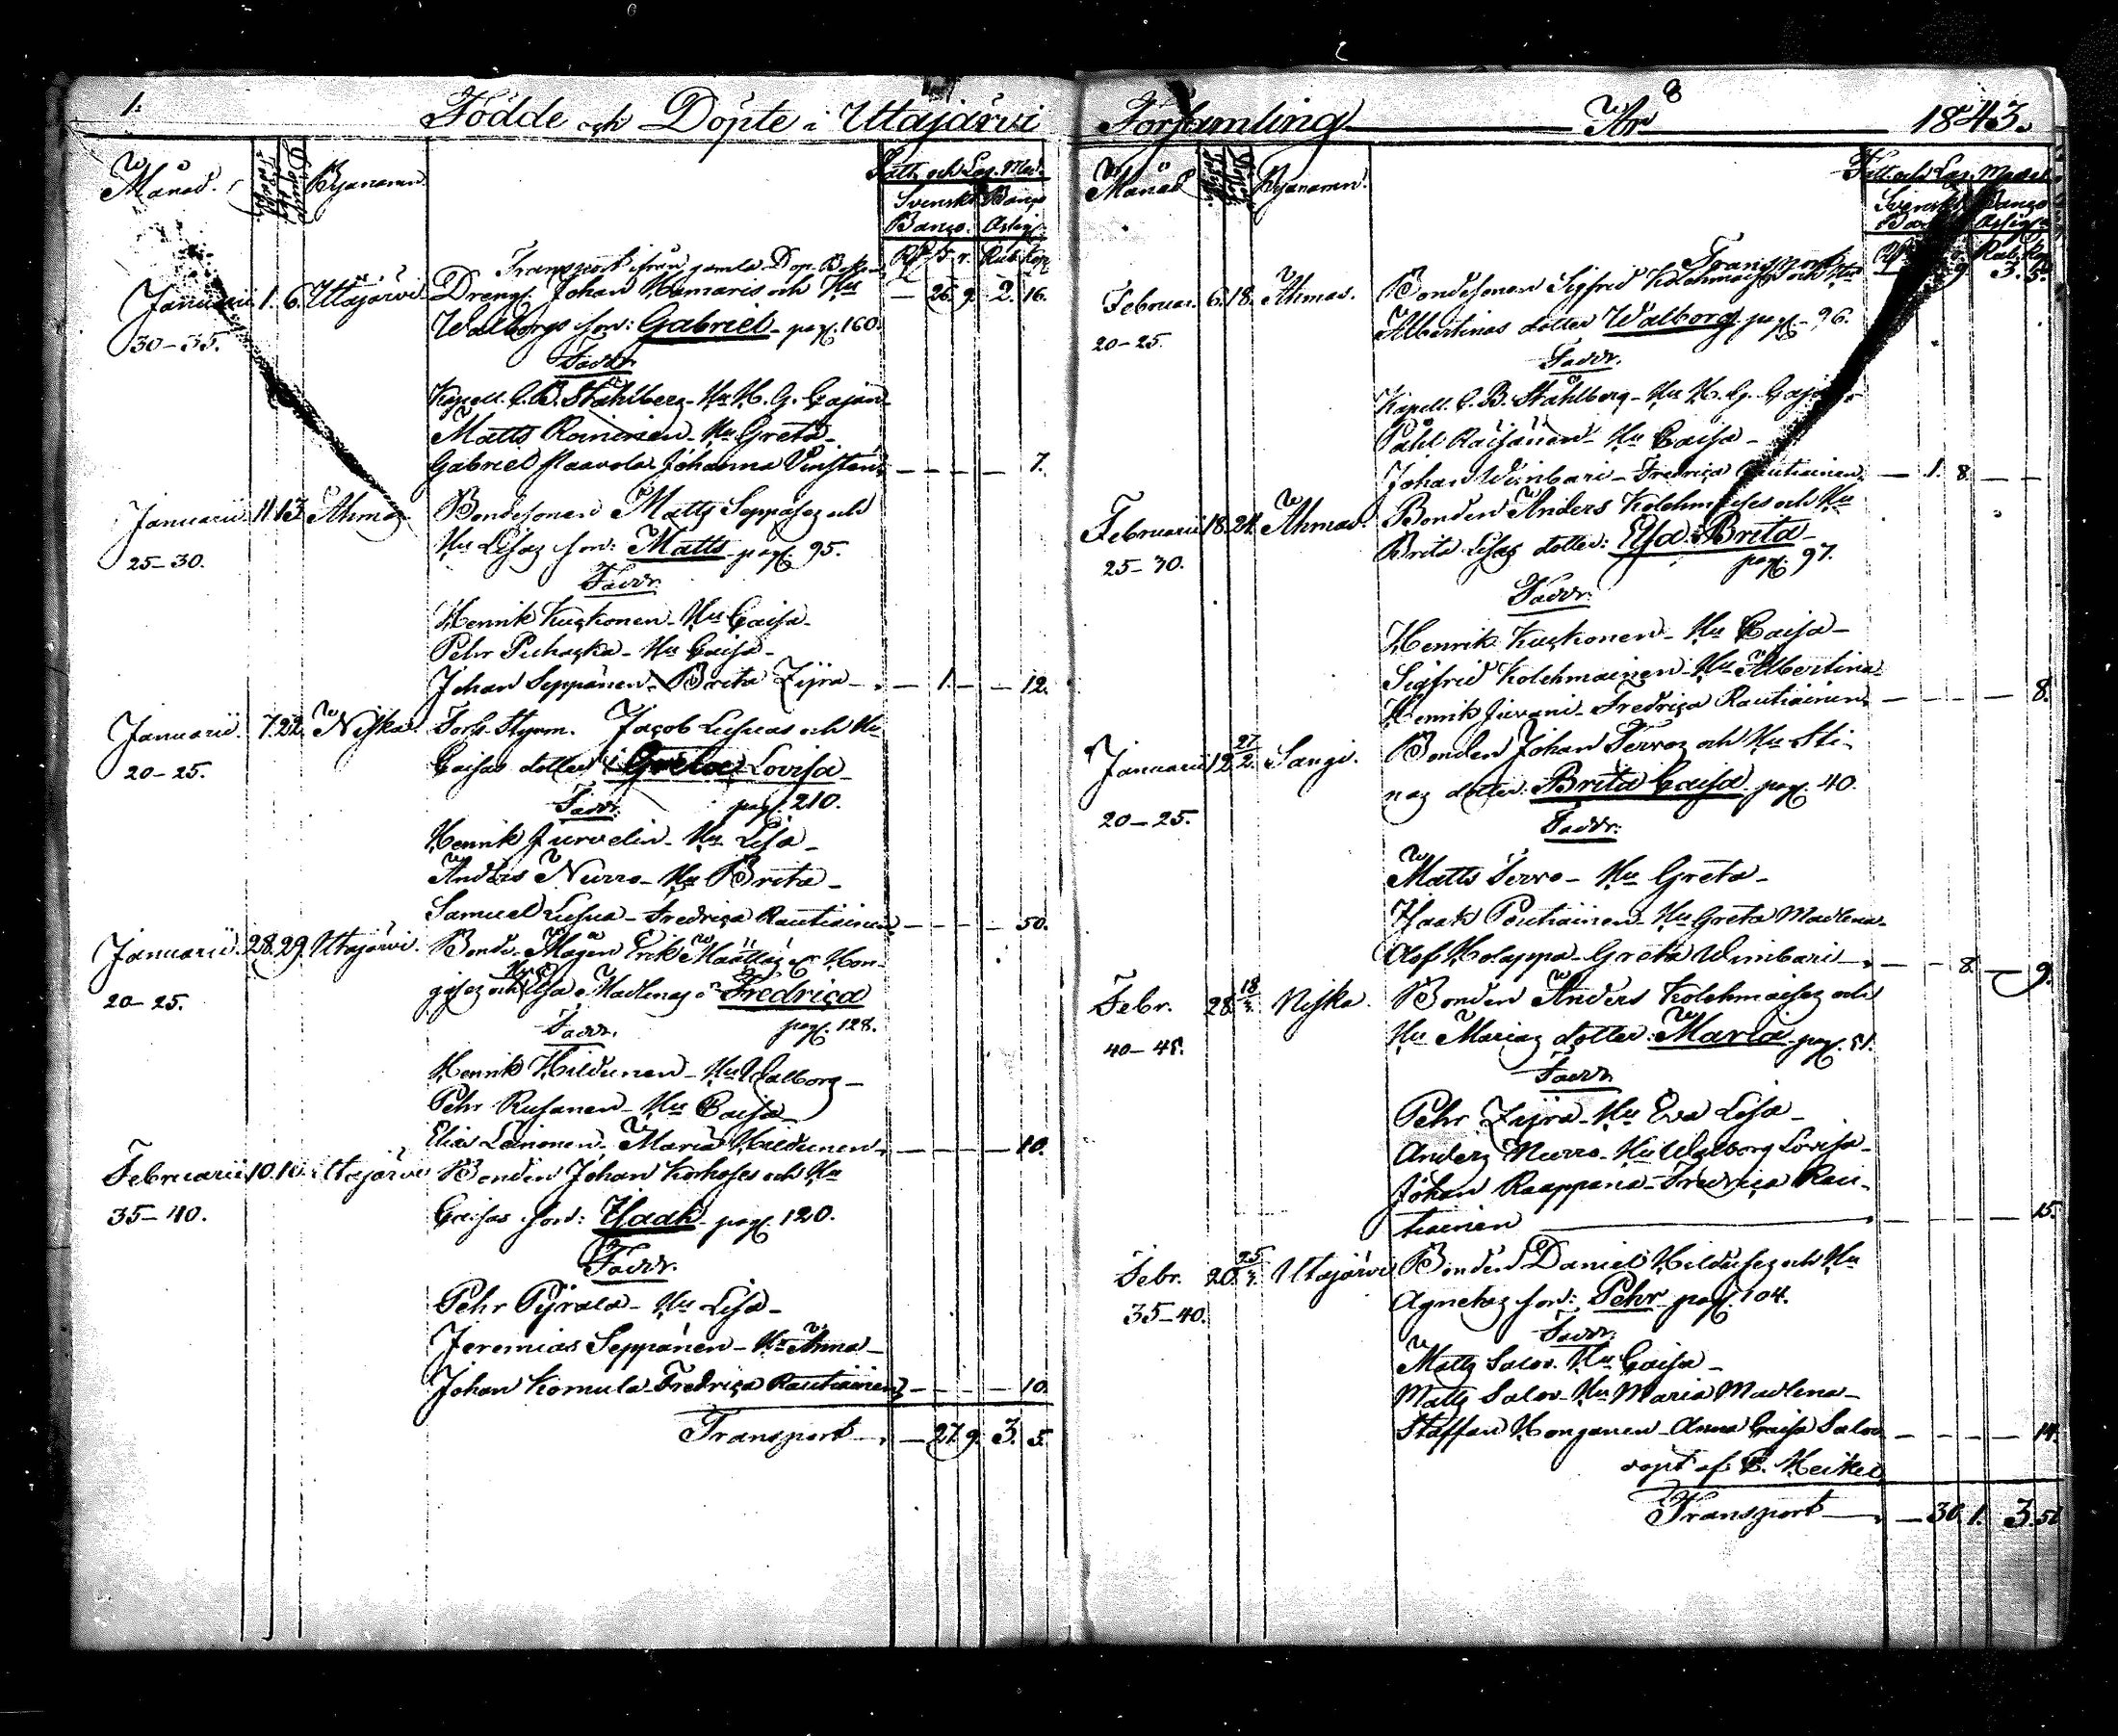 1.
Födde och Döpte i Uttajärvi
Månad.
Födelse
Dopets
Byanamn.
Fatt. och Laz. Med.
Svensk Banco
Banco. Assig.
Rd s. r. Rub. Kop.
Transport ifrån gamla Dop. Boken
Januarii 1. 6. Uttajärvi Drengs Johan Hamaris och Hu — 26. 9. 2. 16.
30–35. Walborgs son: Gabriel pag. 160.
Faddr.
Kapell. C. B. Ståhlberg – Hu H. G. Cajan –
Matts Raininen – Hu Greta –
Gabriel Paavola – Johanna – – – – 7.
Januarii 11. 13. Ahmas Bondesonen Matts Seppäses och
25–30. Hu Lisas son: Matts pag. 95.
Faddr.
Henrik Kuckonen – Hu Caisa –
Pehr Puhacka – Hu Caisa –
Johan Seppänen – Brita Zijra – – 1. – – 12.
Januarii. 7. 22. Niska. Fors. Styrm. Jacob och Hu
20–25. Caisas dotter: Greta Lovisa
Faddr. pag. 210.
Henrik Jurvelin – Hu Lisa –
Anders Nurro – Hu Brita –
Samuel – Fredrica Rautiainen – – – – 50.
Januarii. 28. 29. Uttajärvi. Bonde-Mågen Erik Määttäs Hon-
20–25. och Hu Madlenas dr Fredrica
Faddr. pag. 128.
Henrik Hildunen – Hu Walborg –
Pehr Rusanen – Hu Caisa –
Elias Leinonen – Maria Hildunen – – – – 10.
Februarii 10. 10. Uttajärvi Bonden Johan Korhoses och Hu
35–40. Caisas son: Isaak pag. 120.
Faddr.
Pehr Pyrala – Hu Lisa –
Jeremias Seppänen – Hu Anna –
Johan Komula – Fredrica Rautiainen – – – – 10.
Transport – 27. 9. 3. 5.
Församling År 1843.
8
Månad
Födelse
Dopets
Byanamn.
Fatt. och Laz. Medel
Svensk Banco
Banco Assig.
Transport 9. 3. 5.
Februar. 6. 18. Ahmas. Bondesonen Sigfrid Kolehmaises och Hu
20–25. Albertinas dotter Walborg pag. 96.
Faddr.
Kapell. C. B. Ståhlberg – Hu H. G. Cajan –
Påhl Räisänen – Hu Caisa –
Johan Wimbari – Fredrica Rautiainen – 1. 8. – –
Februarii 18. 24. Ahmas. Bonden Anders Kolehmaises och Hu
25–30. Brita Lisas dotter: Elsa Brita
pag. 97.
Faddr.
Henrik Kuckonen – Hu Caisa –
Sigfrid Kolehmainen – Hu Albertina
Henrik Juvani – Fredrica Rautiainen – – – – 8.
Januarii 12. 27/2. Sangi. Bonden Johan Tervos och Hu Sti-
20–25. nas dotter: Brita Caisa pag. 40.
Faddr.
Matts Tervo – Hu Greta –
Isaak Poutiainen – Hu Greta Madlena –
Olof Holappa – Greta Wimbari – – – 8. – 9.
Febr. 28. 18/3. Niska. Bonden Anders Kolehmaises och
40–45. Hu Marias dotter: Maria pag. 51.
Faddr.
Pehr Zijra – Hu Eva Lisa –
Anders Nurro – Hu Walborg Lovisa –
Johan Raappana – Fredrica Rau-
tiainen – – – – 15.
Febr. 20. 25/3. Uttajärvi Bonden Daniel Hilduses och Hu
35–40. Agnetas son: Pehr pag. 104.
Faddr.
Matts Salov. Hu Caisa –
Matts Salov – Hu Maria Madlena –
Staffan Honganen – Anna Caisa Salov – – – – 14.
döpt af C. Heikel
Transport – 30. 1. 3. 51